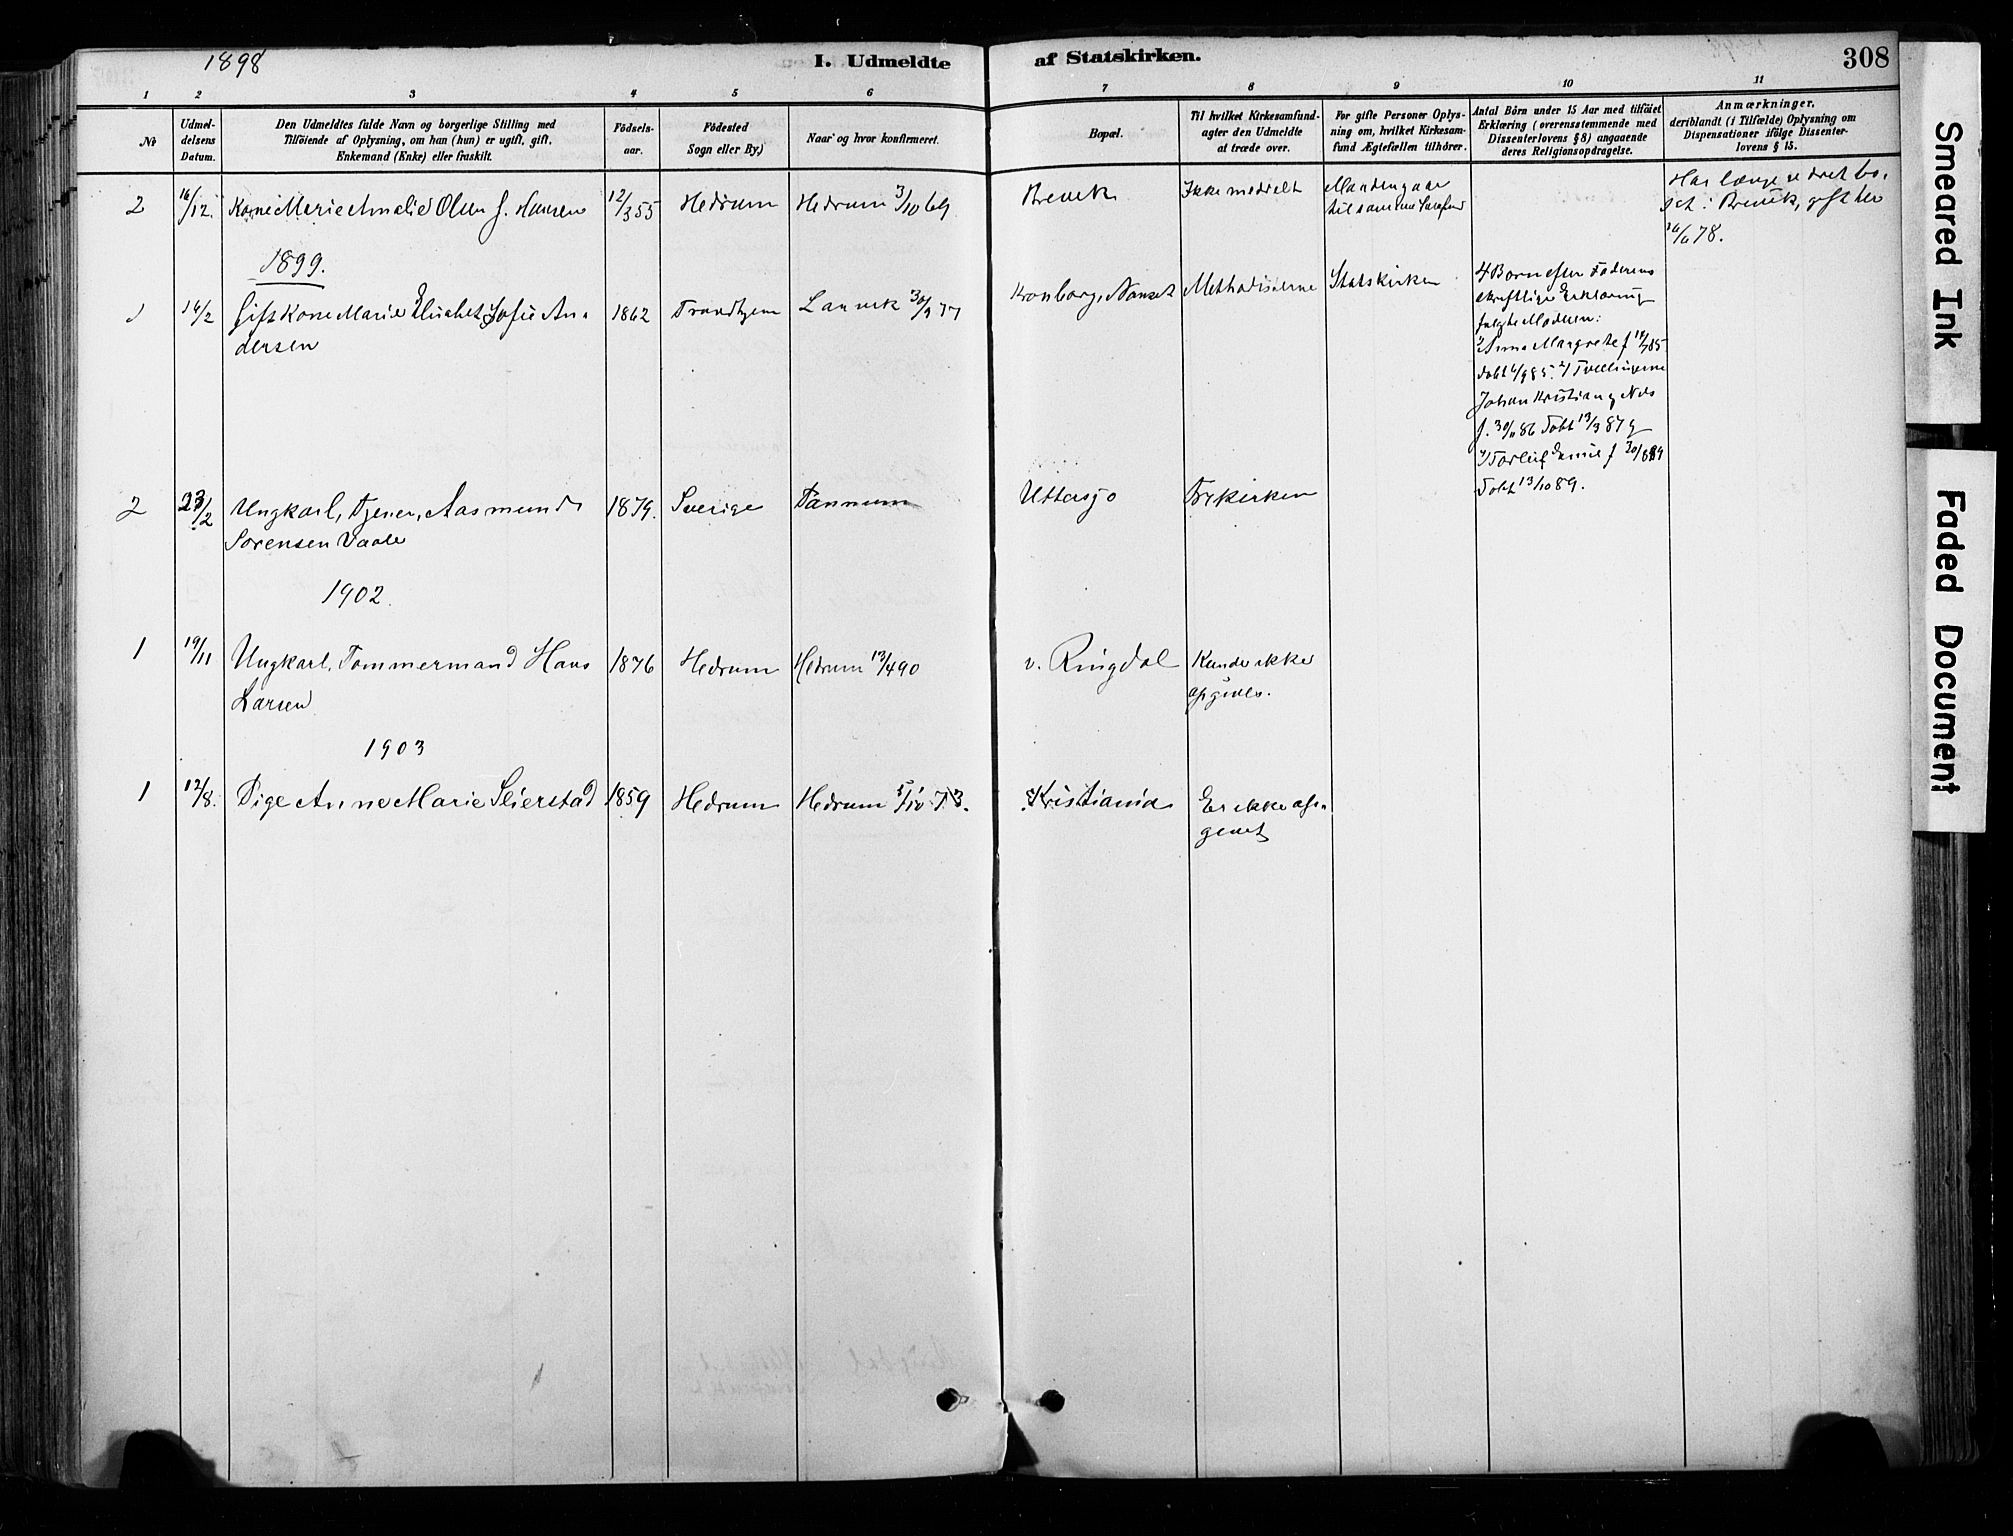 1898
I. Udmeldte
af Statskirken.
308
1 2 3 4 5 6 7 8 9 10 11
№
Udmel-
delsens
Datum.
Den Udmeldtes fulde Navn og borgerlige Stilling med
Tilföiende af Oplysning, om han (hun) er ugift, gift,
Enkemand (Enke) eller fraskilt.
Födsels-
aar.
Födested
Sogn eller By.)
Naar og hvor konfirmeret.
Bopæl.
Til hvilket Kirkesamfund-
agter den Udmeldte
at træde over.
For gifte Personer Oplys-
ning om, hvilket Kirkesam-
fund Ægtefællen tilhörer.
Antal Börn under 15 Aar med tilföiet
Erklæring (overensstemmende med
Dissenterlovens § 8) angaaende
deres Religionsopdragelse.
Anmærkninger,
deriblandt (i Tilfælde) Oplysning om
Dispensationer ifölge Dissenter-
lovens § 15.
2
16/12.
Kone Marie Amalie Olsen f. Hansen
12/3 55
Hedrum
Hedrum 3/10 69
Brevik
Ikke meddelt
Manden gaar
til samme
Har længe været bo-
sat i Brevik, gift
78.
1899.
1
16/2
Gift Kone Marie Elisabet Sofie An-
dersen
1862
Trondhjem
Laurvik 30/9 77
Kronborg, Nanset
Methodisterne
Statskirken
4 Børn efter Faderens
skriftlige Erklæring
følgte Moderen:
Anna Margrete f
døbt 85. 2/ Tvillingerne
Johan Kristian og Nils
f. 30/11 86 døbt 13/3 87 og
Torleif f 30/8 89
døbt 13/10 89.
2
23/2
Ungkarl, Tjener, Aasmund
Sørensen Vaale
1879.
Sverige
Tannum
Uttersjø
Frikirken
1902.
1
19/11
Ungkarl, Tømmermand Hans
Larsen
1876
Hedrum
Hedrum 13/4 90
v. Ringdal
Kunde ikke
opgives.
1903
1
12/8.
Pige Anne Marie Seierstad
1859
Hedrum
Hedrum 5/10 73.
Kristiania
Er ikke op-
givet
Smeared Ink
Faded Document